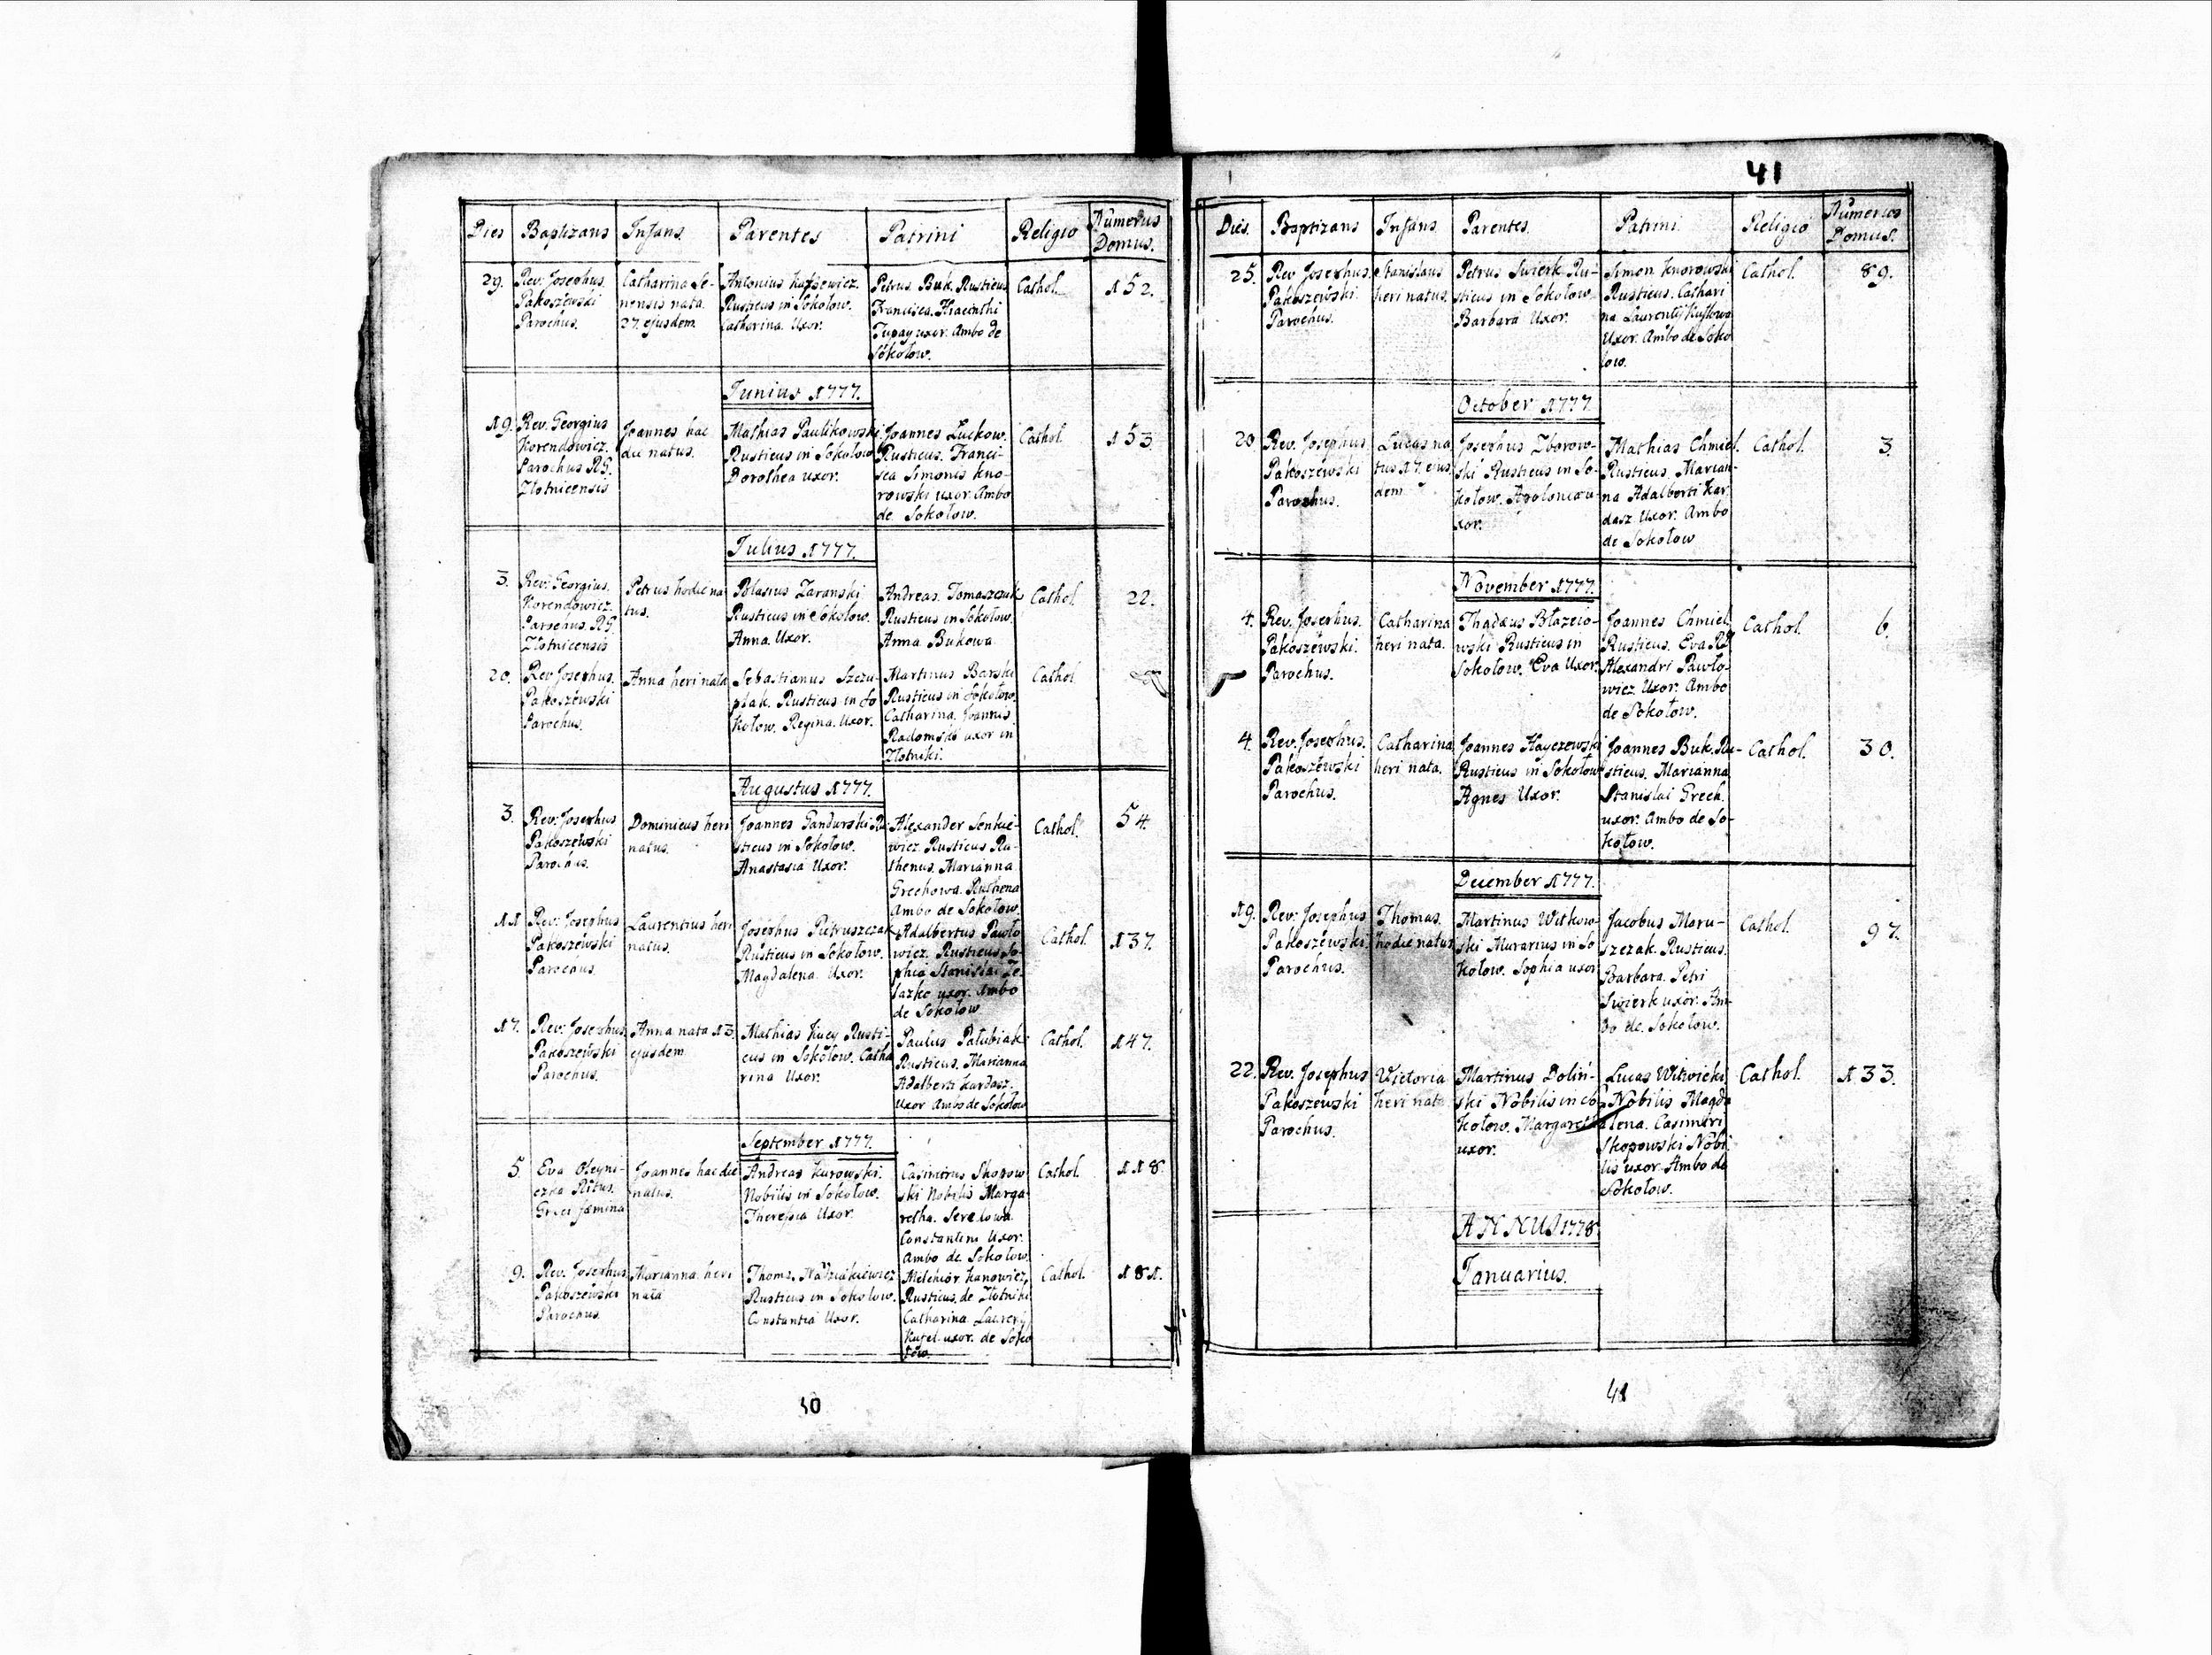 Dies Baptizans Infans. Parentes Patrini Religio Numerus Domus.
29. Rev. Josephus. Pakoszewski Parochus.
Catharina Se-
nensis nata.
27. ejusdem
Antonius
Rusticus in Sokołow.
Catherina. Uxor.
Petrus. Buk. Rusticus
Francisca. Hiacinthi
Tupay uxor. Ambo de
Sokołow.
Cathol. 152.
Junius 1777.
19. Rev. Georgius
Korendowicz.
Parochus RG.
Złotnicensis
Joannes hac
die natus.
Mathias Paulikowski
Rusticus in Sokołow
Dorothea uxor.
Joannes Luckow.
Rusticus. Franci-
sca Simonis Kno-
rowski uxor. Ambo
de Sokołow.
Cathol. 153.
Julius 1777.
3. Rev: Georgius.
Korendowicz.
Parochus. RG.
Złotnicensis
Petrus hodie na
tus.
Blasius Zaranski
Rusticus in Sokołow.
Anna. Uxor.
Andreas. Tomaszczuk
Rusticus in Sokołow.
Anna Bukowa
Cathol. 22.
20. Rev Josephus.
Pakoszewski
Parochus.
Anna heri nata
Sebastianus Szczu-
plak. Rusticus in So
kołow. Regina. Uxor.
Martinus Barski
Rusticus in Sokołow.
Catharina. Joannis
Radomski uxor in
Złotniki.
Cathol
Augustus 1777.
3. Rev: Josephus
Pakoszewski
Parochus.
Dominicus heri
natus.
Joannes Gandurski Ru-
sticus in Sokołow.
Anastasia Uxor.
Alexander Senkie-
wicz. Rusticus Ru-
thenus. Marianna
Grechowa. Ruthena
Ambo de Sokołow.
Cathol. 54.
11. Rev: Josephus
Pakoszewski
Parochus.
Laurentius heri
natus.
Josephus Pietruszczak
Rusticus in Sokołow.
Magdalena. Uxor.
Adalbertus Pawło
wicz. Rusticus So-
phia Stanislai Że
lazko uxor. Ambo
de Sokołow
Cathol. 137.
17. Rev: Josephus
Pakoszewski
Parochus.
Anna nata 13.
ejusdem
Mathias Kucy Rusti-
cus in Sokołow. Catha
rina Uxor.
Paulus Pałubiak
Rusticus. Marianna
Adalberti Kardasz.
Uxor Ambo de Sokołow
Cathol. 147.
September 1777.
5. Eva Oleyni-
czka Ritus.
Græci fæmina
Joannes hac die
natus.
Andreas Kurowski.
Nobilis in Sokołow.
Theresia Uxor
Casimirus Skopow
ski Nobilis Marga
retha.
Constantini Uxor.
Ambo de Sokołow
Cathol. 118.
9. Rev. Josephus
Pakoszewski
Parochus.
Marianna. heri
nata
Thoms. Nadziakiewicz
Rusticus in Sokołow.
Constantia Uxor.
Melchior Kanowicz,
Rusticus. de Złotniki
Catharina
Kufel. uxor. de Soko
łow.
Cathol. 181.
41
Dies. Baptizans Infans. Parentes. Patrini. Religio Numerus Domus.
25. Rev Josephus.
Pakoszewski.
Parochus.
Stanislaus
heri natus.
Petrus Swierk. Ru-
sticus in Sokołow.
Barbara Uxor.
Simon Knorowski
Rusticus. Cathari
na Laurentij
Uxor. Ambo de Soko
low.
Cathol. 89.
October 1777.
20 Rev. Josephus
Pakoszewski
Parochus.
Lucas na
tus 17. ejus
dem
Josephus Zborow-
ski Rusticus in So-
kołow. Apolonia u
xor.
Mathias Chmiel.
Rusticus. Marian-
na Adalberti Kar
dasz Uxor. Ambo
de Sokołow
Cathol. 3.
November 1777.
4. Rev. Josephus.
Pakoszewski.
Parochus.
Catharina
heri nata.
Thadæus Błazeio-
wski Rusticus in
Sokołow. Eva Uxor.
Joannes Chmiel,
Rusticus. Eva RG
Alexandri Pawło-
wicz. Uxor. Ambo
de Sokołow.
Cathol. 6.
4. Rev. Josephus.
Pakoszewski
Parochus.
Catharina
heri nata.
Joannes Hayczewski
Rusticus in Sokołow
Agnes Uxor.
Joannes Buk. Ru-
sticus. Marianna
Stanislai Grech.
uxor. Ambo de So-
kołow.
Cathol. 30.
December 1777.
19. Rev: Josephus
Pakoszewski
Parochus.
Thomas.
hodie natus
Martinus Witkow-
ski Murarius in So
kołow. Sophia uxor
Jacobus Maru-
szczak. Rusticus.
Barbara. Petri
Swierk uxor. Am-
bo de Sokołow.
Cathol. 97.
22. Rev. Josephus
Pakoszewski
Parochus.
Victoria
heri nata
Martinus Dolin-
ski Nobilis in So
kołow. Margaretha
uxor.
Lucas Witwicki
Nobilis Magda
lena. Casimiri
Skopowski Nobi
lis uxor Ambo de
Sokołow.
Cathol. 133.
ANNUS 1778.
Januarius.
41